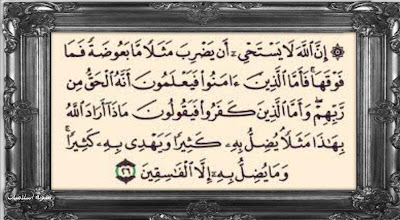 ۞ إِنَّ ٱللَّهَ لَا يَسْتَحْىِۦٓ أَن يَضْرِبَ مَثَلًا مَّا بَعُوضَةً فَمَا
فَوْقَهَا ۚ فَأَمَّا ٱلَّذِينَ ءَامَنُوا۟ فَيَعْلَمُونَ أَنَّهُ ٱلْحَقُّ مِن
رَّبِّهِمْ ۖ وَأَمَّا ٱلَّذِينَ كَفَرُوا۟ فَيَقُولُونَ مَاذَآ أَرَادَ ٱللَّهُ
بِهَٰذَا مَثَلًا ۘ يُضِلُّ بِهِۦ كَثِيرًا وَيَهْدِى بِهِۦ كَثِيرًا ۚ
وَمَا يُضِلُّ بِهِۦٓ إِلَّا ٱلْفَٰسِقِينَ ٢٦